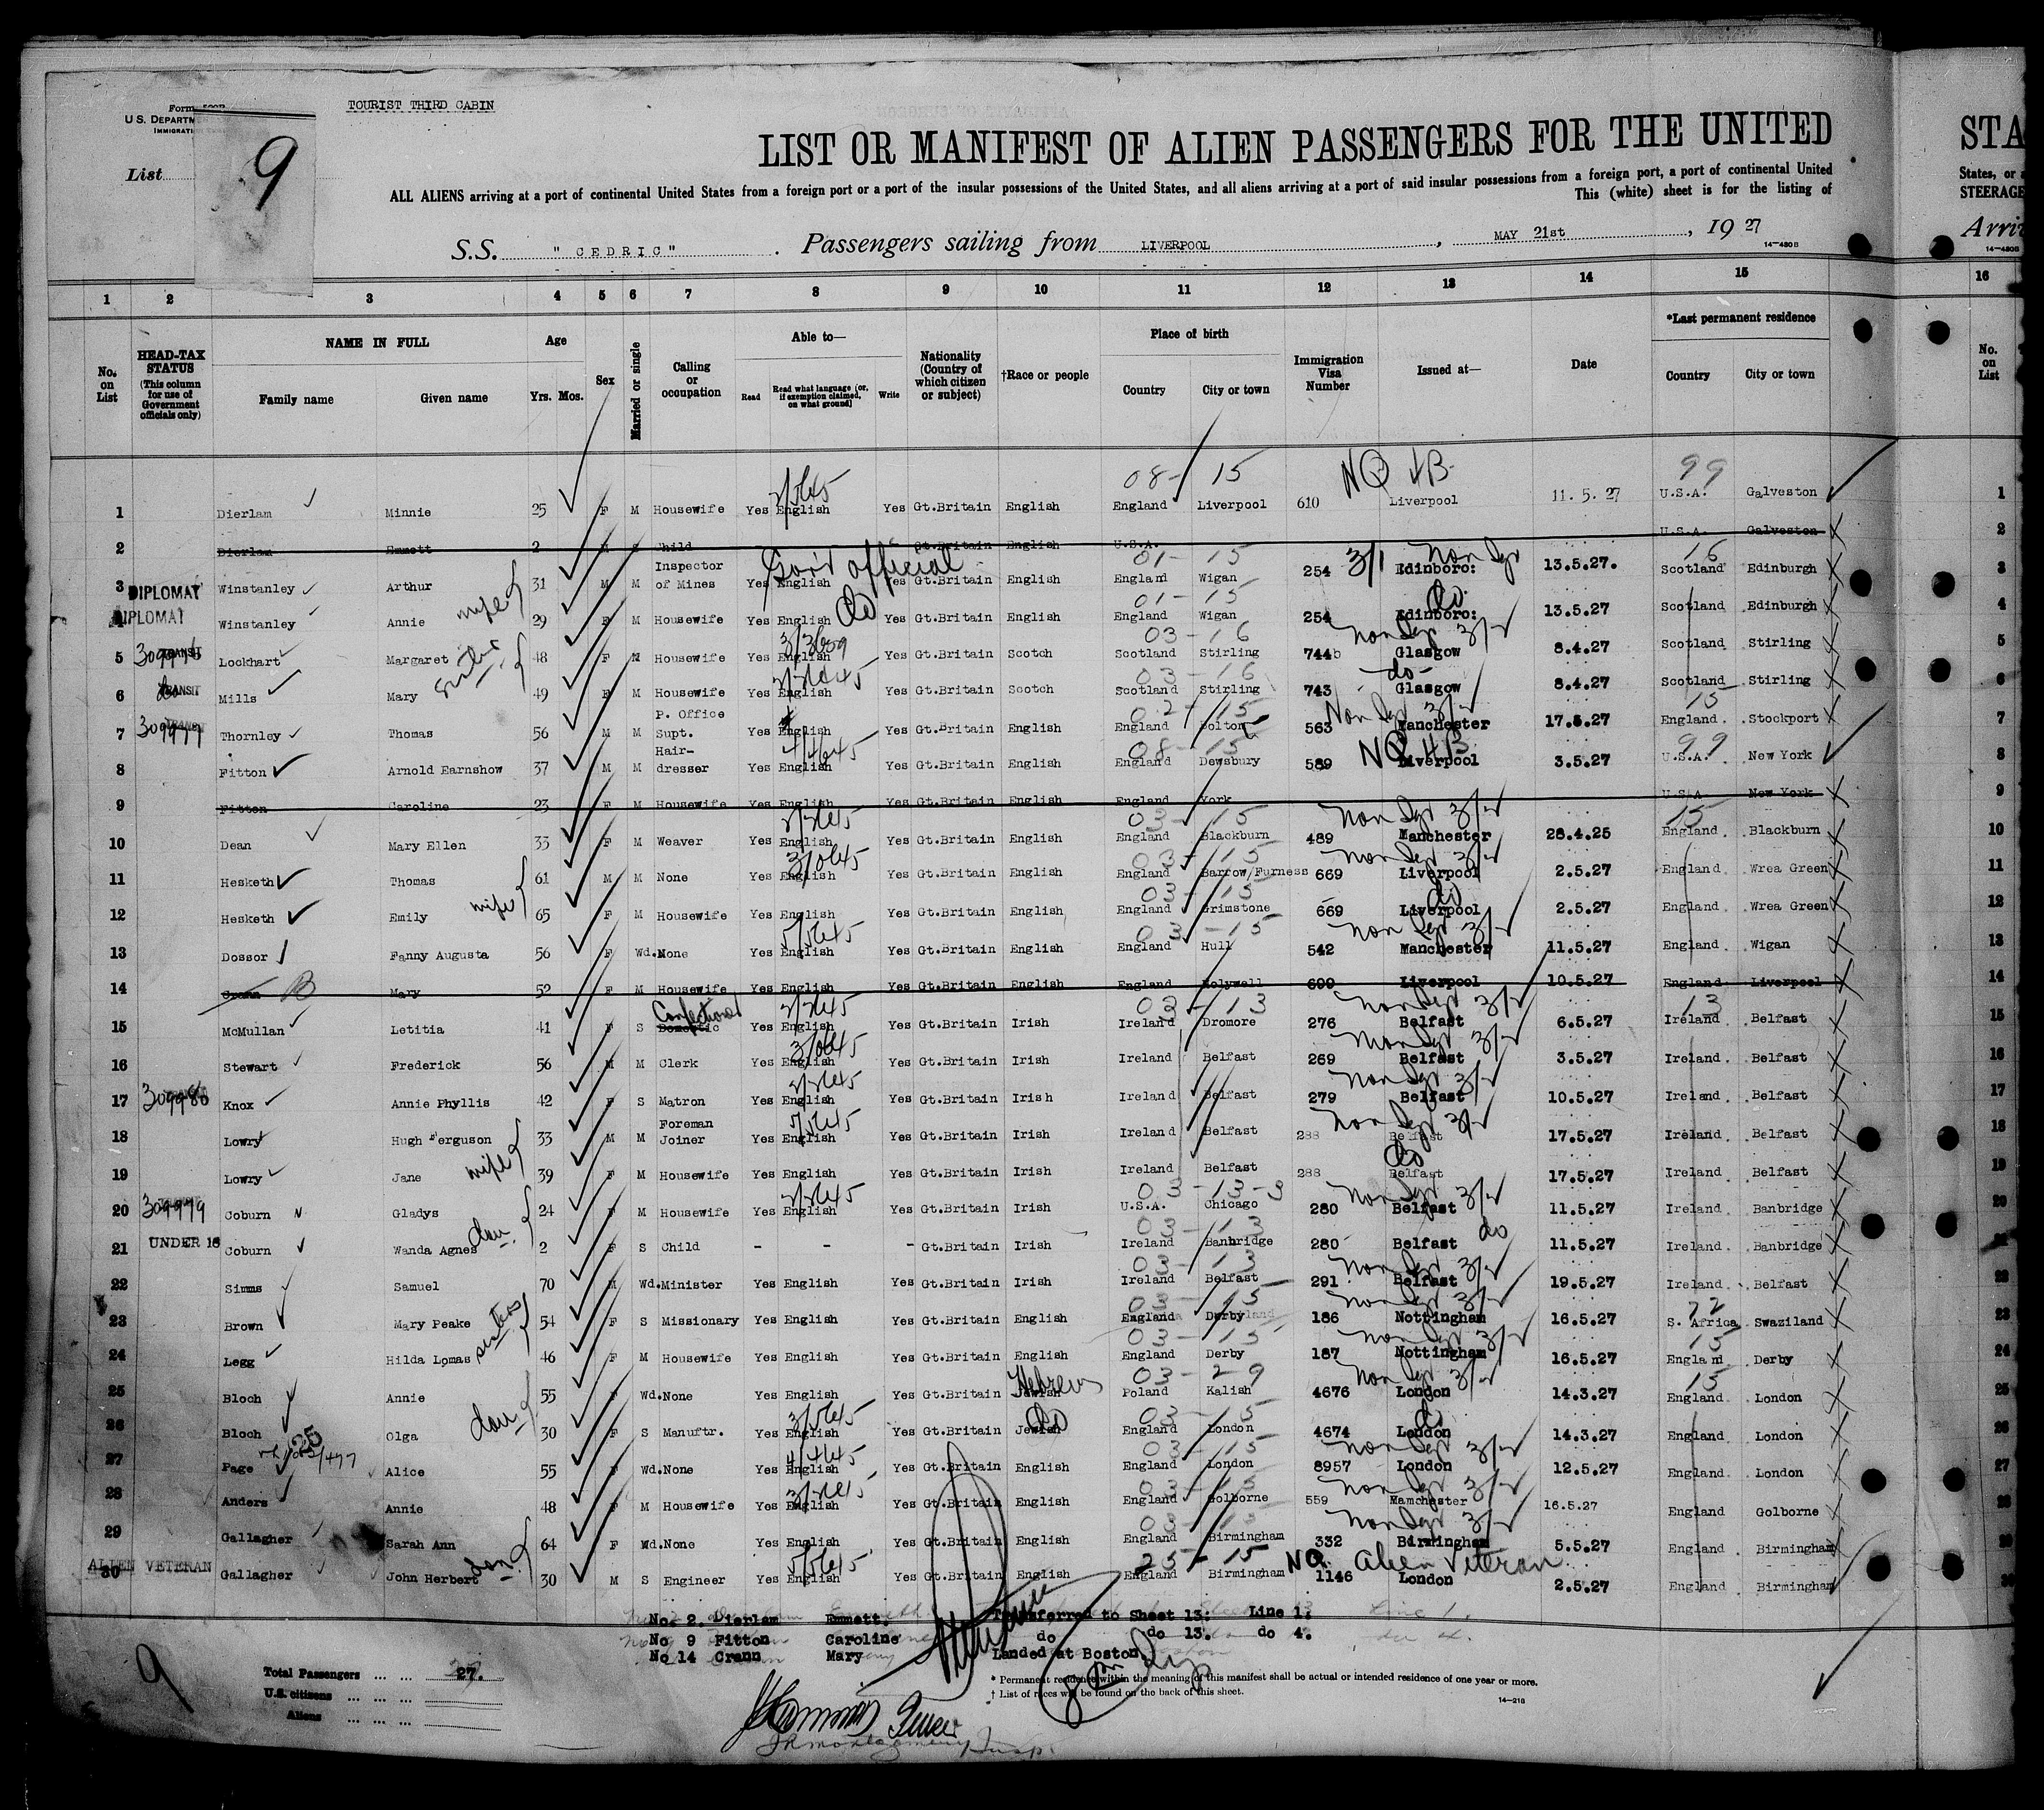 TOURIST THIRD CABIN
Form
U.S. DEPARTM
IMMIGRATI
List 9
LIST OR MANIFEST OF ALIEN PASSENGERS FOR THE UNITED
STA
ALL ALIENS arriving at a port of continental United States from a foreign port or a port of the insular possessions of the United States, and all aliens arriving at a port of said insular possessions from a foreign port, a port of continental United
States, or a
This (white) sheet is for the listing of
STEERAGE
S.S. " CEDRIC" . Passengers sailing from LIVERPOOL , MAY 21st , 19 27
Arriv
14—480B
14—480B
1 2 3 4 5 6 7 8 9 10 11 12 13 14 15 16
No. on List
HEAD-TAX STATUS (This column for use of Government officials only)
NAME IN FULL
Family name Given name
Age
Yrs. Mos.
Sex
Married or single
Calling or occupation
Able to—
Read Read what language (or, if exemption claimed, on what ground) Write
Nationality (Country of which citizen or subject)
†Race or people
Place of birth
Country City or town
Immigration Visa Number
Issued at—
Date
*Last permanent residence
Country City or town
No. on List
08- 15 NQ 4B 99
1 Dierlam Minnie 25 F M Housewife Yes English Yes Gt.Britain English England Liverpool 610 Liverpool 11.5.27 U.S.A. Galveston 1
2 Dierlam Emmett 2 M S Child Gt.Britain English U.S.A. U.S.A. Galveston 2
Gov't official 01- 15 3/1 Non 16
3 DIPLOMAT Winstanley Arthur 31 M M Inspector of Mines Yes English Yes Gt.Britain English England Wigan 254 Edinboro: 13.5.27. Scotland Edinburgh 3
wife do 01- 15 do
4 DIPLOMAT Winstanley Annie 29 F M Housewife Yes English Yes Gt.Britain English England Wigan 254 Edinboro: 13.5.27 Scotland Edinburgh 4
03-16
5 TRANSIT Lockhart Margaret 48 F M Housewife Yes English Yes Gt.Britain Scotch Scotland Stirling 744b Glasgow 8.4.27 Scotland Stirling 5
sister 03-16 do-
6 do TRANSIT Mills Mary 49 F M Housewife Yes English Yes Gt.Britain Scotch Scotland Stirling 743 Glasgow 8.4.27 Scotland Stirling 6
02- 15 15
7 309977 TRANSIT Thornley Thomas 56 M M P. Office Supt. Yes English Yes Gt.Britain English England Bolton 563 Manchester 17.5.27 England. Stockport 7
4/4645 08- 15 NQ 4B 99
8 Fitton Arnold Earnshow 37 M M Hair-dresser Yes English Yes Gt.Britain English England Dewsbury 589 Liverpool 3.5.27 U.S.A. New York 8
9 Fitton Caroline 23 F M Housewife Yes English Yes Gt.Britain English England York U.S.A. New York 9
03- 15 15
10 Dean Mary Ellen 33 F M Weaver Yes English Yes Gt.Britain English England Blackburn 489 Manchester 28.4.25 England. Blackburn 10
03- 15
11 Hesketh Thomas 61 M M None Yes English Yes Gt.Britain English England Barrow/Furness 669 Liverpool 2.5.27 England. Wrea Green 11
wife 03- 15 do
12 Hesketh Emily 65 F M Housewife Yes English Yes Gt.Britain English England Grimstone 669 Liverpool 2.5.27 England. Wrea Green 12
03-15
13 Dossor Fanny Augusta 56 F Wd. None Yes English Yes Gt.Britain English England Hull 542 Manchester 11.5.27 England. Wigan 13
14 Crann Mary 52 F M Housewife Yes English Yes Gt.Britain English England Holywell 699 Liverpool 10.5.27 England Liverpool 14
03- 13 13
15 McMullan Letitia 41 F S Domestic Yes English Yes Gt.Britain Irish Ireland Dromore 276 Belfast 6.5.27 Ireland Belfast 15
16 Stewart Frederick 56 M M Clerk Yes English Yes Gt.Britain Irish Ireland Belfast 269 Belfast 3.5.27 Ireland. Belfast 16
17 309980 Knox Annie Phyllis 42 F S Matron Yes English Yes Gt.Britain Irish Ireland Belfast 279 Belfast 10.5.27 Ireland. Belfast 17
18 Lowry Hugh Ferguson 33 M M Foreman Joiner Yes English Yes Gt.Britain Irish Ireland Belfast 288 Belfast 17.5.27 Ireland. Belfast 18
wife do
19 Lowry Jane 39 F M Housewife Yes English Yes Gt.Britain Irish Ireland Belfast 288 Belfast 17.5.27 Ireland. Belfast 19
03-13-3
20 309979 Coburn Gladys 24 F M Housewife Yes English Yes Gt.Britain Irish U.S.A. Chicago 280 Belfast 11.5.27 Ireland. Banbridge 20
dau. 03- 13 do
21 UNDER 16 Coburn Wanda Agnes 2 F S Child - - - Gt.Britain Irish Ireland Banbridge 280 Belfast 11.5.27 Ireland. Banbridge 21
03- 13
22 Simms Samuel 70 M Wd. Minister Yes English Yes Gt.Britain Irish Ireland Belfast 291 Belfast 19.5.27 Ireland. Belfast 22
03- 15 72
23 Brown Mary Peake 54 F S Missionary Yes English Yes Gt.Britain English England Derby 186 Nottingham 16.5.27 S. Africa Swaziland 23
sisters 03- 15 15
24 Legg Hilda Lomas 46 F M Housewife Yes English Yes Gt.Britain English England Derby 187 Nottingham 16.5.27 England. Derby 24
Hebrew 03- 29 15
25 Bloch Annie 55 F Wd. None Yes English Yes Gt.Britain Jewish Poland Kalish 4676 London 14.3.27 England. London 25
dau do 03- 15 do
26 Bloch Olga 30 F S Manuftr. Yes English Yes Gt.Britain Jewish England London 4674 London 14.3.27 England. London 26
4/4645 03- 15
27 Page Alice 55 F Wd. None Yes English Yes Gt.Britain English England London 8957 London 12.5.27 England. London 27
03- 15
28 Anders Annie 48 F M Housewife Yes English Yes Gt.Britain English England Golborne 559 Mamchester 16.5.27 England Golborne 28
03- 15
29 Gallagher Sarah Ann 64 F Wd. None Yes English Yes Gt.Britain English England Birmingham 332 Birmingham 5.5.27 England. Birmingham 29
ALIEN VETERAN 25- 15 NQ. Alien Veteran
30 Gallagher John Herbert 30 M S Engineer Yes English Yes Gt.Britain English England Birmingham 1146 London 2.5.27 England. Birmingham 30
No. 2. Dierlam Emmett. Transferred to Sheet 13: Line 1.
No 9 Fitton Caroline do do 13. do 4.
No 14 Crann Mary Landed at Boston.
9
Total Passengers ... ... 27.
U.S. citizens ... ... ...
Aliens ... ... ...
* Permanent residence within the meaning of this manifest shall be actual or intended residence of one year or more.
† List of races will be found on the back of this sheet.
14—216